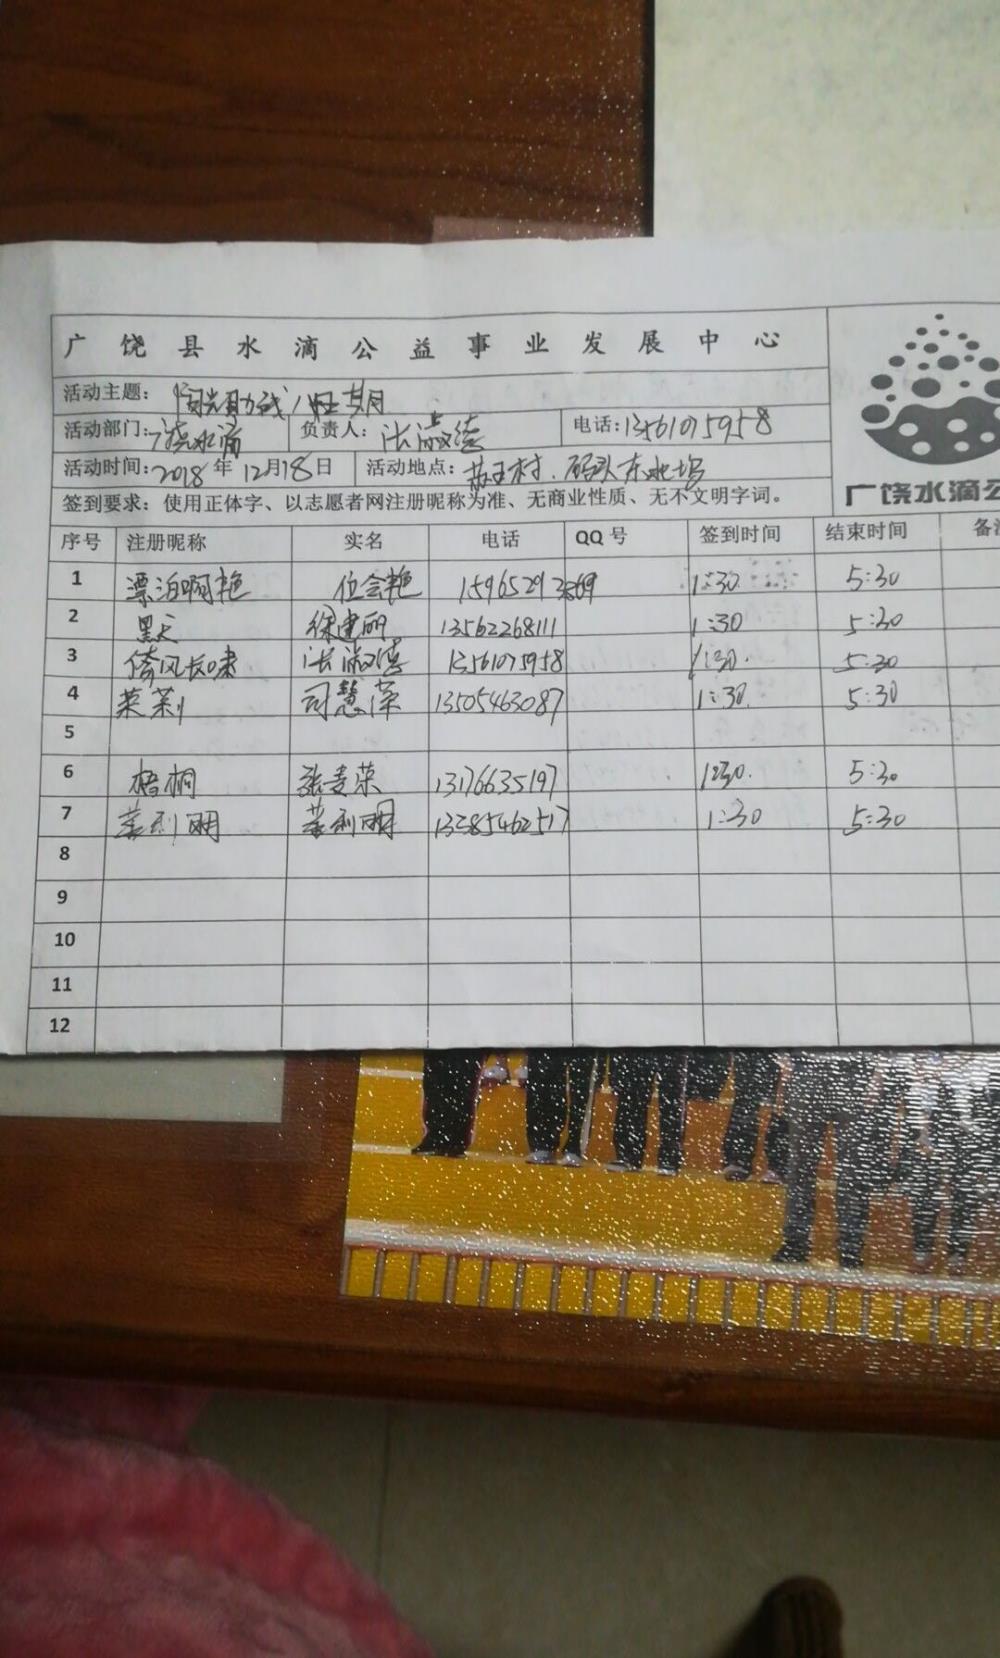 广饶县水滴公益事业发展中心
活动主题： 阳光助战
活动部门： 广饶水滴 负责人： 张淑德 电话：13561075958
活动时间：2018年12月18日 活动地点： 苏王村．码头东北坞
签到要求：使用正体字、以志愿者网注册昵称为准、无商业性质、无不文明字词。
广饶水滴公
序号 注册昵称 实名 电话 QQ号 签到时间 结束时间 备注
1 漂泊啊艳 位会艳 15965293569 1:30 5:30
2 黑天 徐建丽 13562268111 1:30 5:30
3 倚风长啸 张淑德 13561075958 1:30. 5:30
4 茉莉 司慧荣 13505463087 1:30. 5:30
5
6 梧桐 张麦荣 13176635197 1:30. 5:30
7 利明 利明 1:30 5:30
8
9
10
11
12